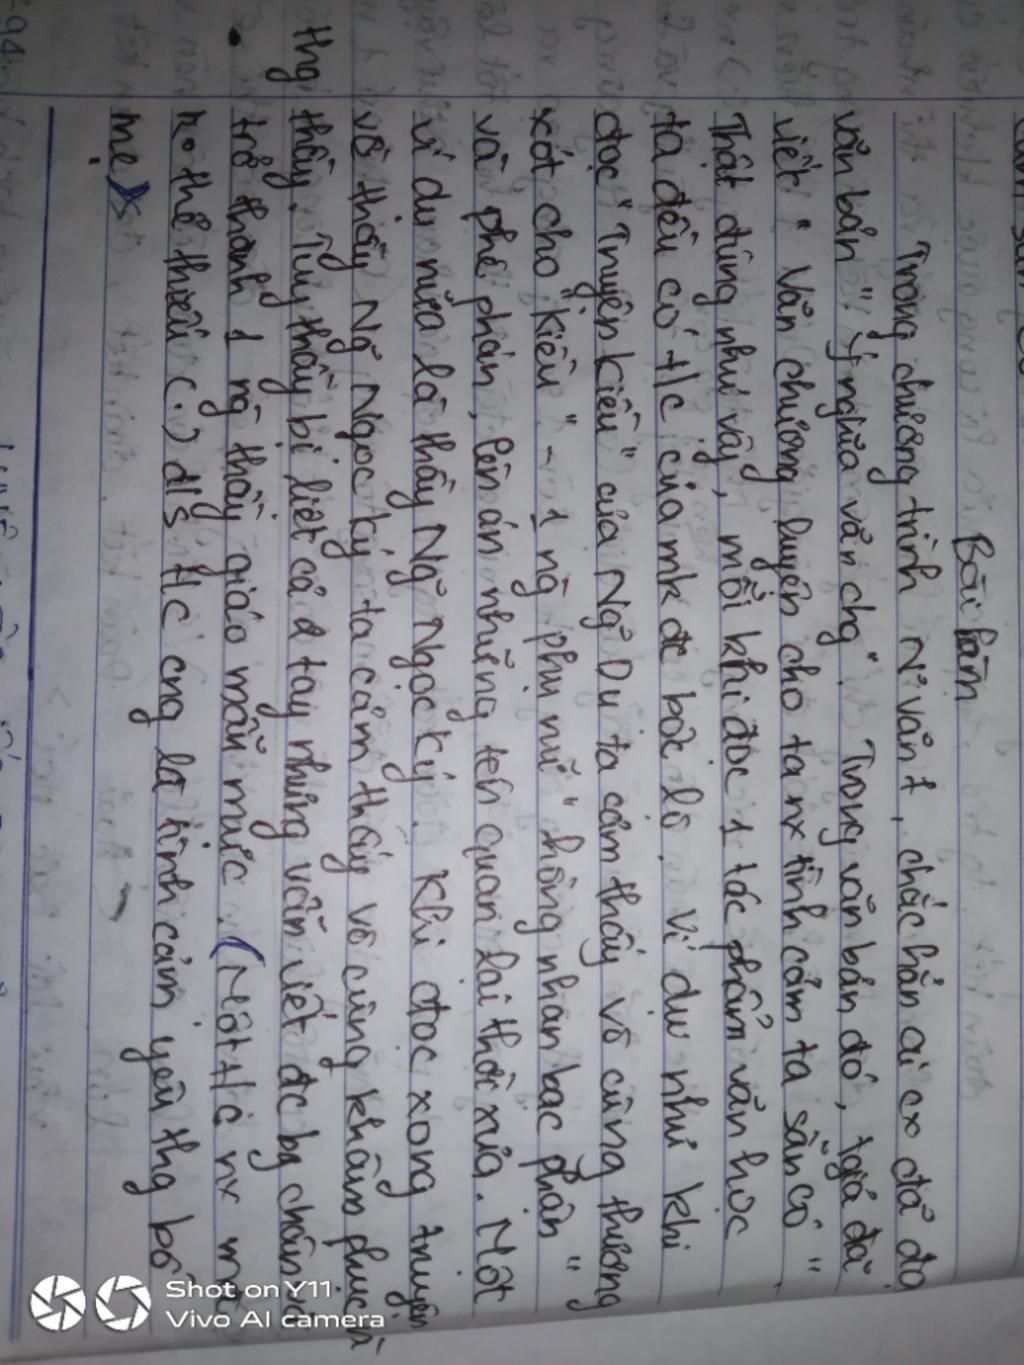 Bài làm
Trong chương trình N văn 7, chắc hẳn ai cx đã đọ
văn bản " Ý nghĩa văn chg". Trong văn bản đó, tgiả đã
viết: " Văn chương luyện cho ta nx tình cảm ta sẵn có "
Thật đúng như vậy, mỗi khi đọc 1 tác phẩm văn học
ta đều có t/c của mk đc bộc lộ. Ví dụ như khi
đọc " Truyện Kiều" của Ng~ Du ta cảm thấy vô cùng thương
xót cho "Kiều" - 1 ng phụ nữ " hồng nhan bạc phận "
và phê phán, lên án những tên quan lại thời xưa. Một
ví dụ nữa là thầy Ng~ Ngọc Ký. Khi đọc xong truyện
về thầy Ng~ Ngọc Ký ta cảm thấy vô cùng khâm phục và
thg thầy. Tuy thầy bị liệt cả 2 tay nhưng vẫn viết đc bg chân và
trở thành 1 ng thầy giáo mẫu mực. (Một t/c nx mà
ko thể thiếu (.) đ/s t/c cng là tình cảm yêu thg bố
mẹ).
Shot on Y11
Vivo AI camera